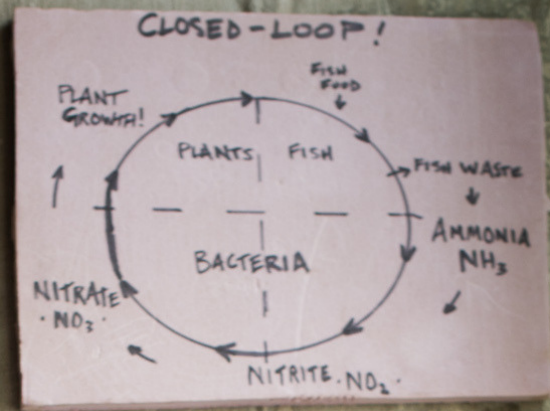 CLOSED-LOOP!
FISH
FOOD
PLANT
GROWTH!
PLANTS
FISH
FISH WASTE
AMMONIA
NH₃
BACTERIA
NITRATE
·NO₃·
NITRITE·NO₂·